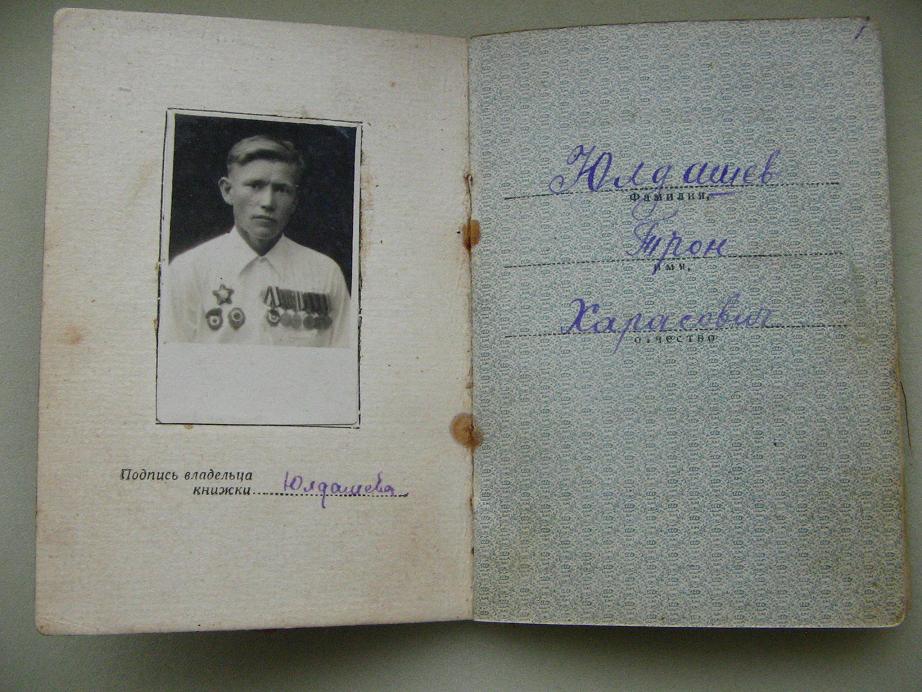 Подпись владельца
книжки Юлдашева
Юлдашев
Фамилия,
Трон
имя,
Харасович
отчество